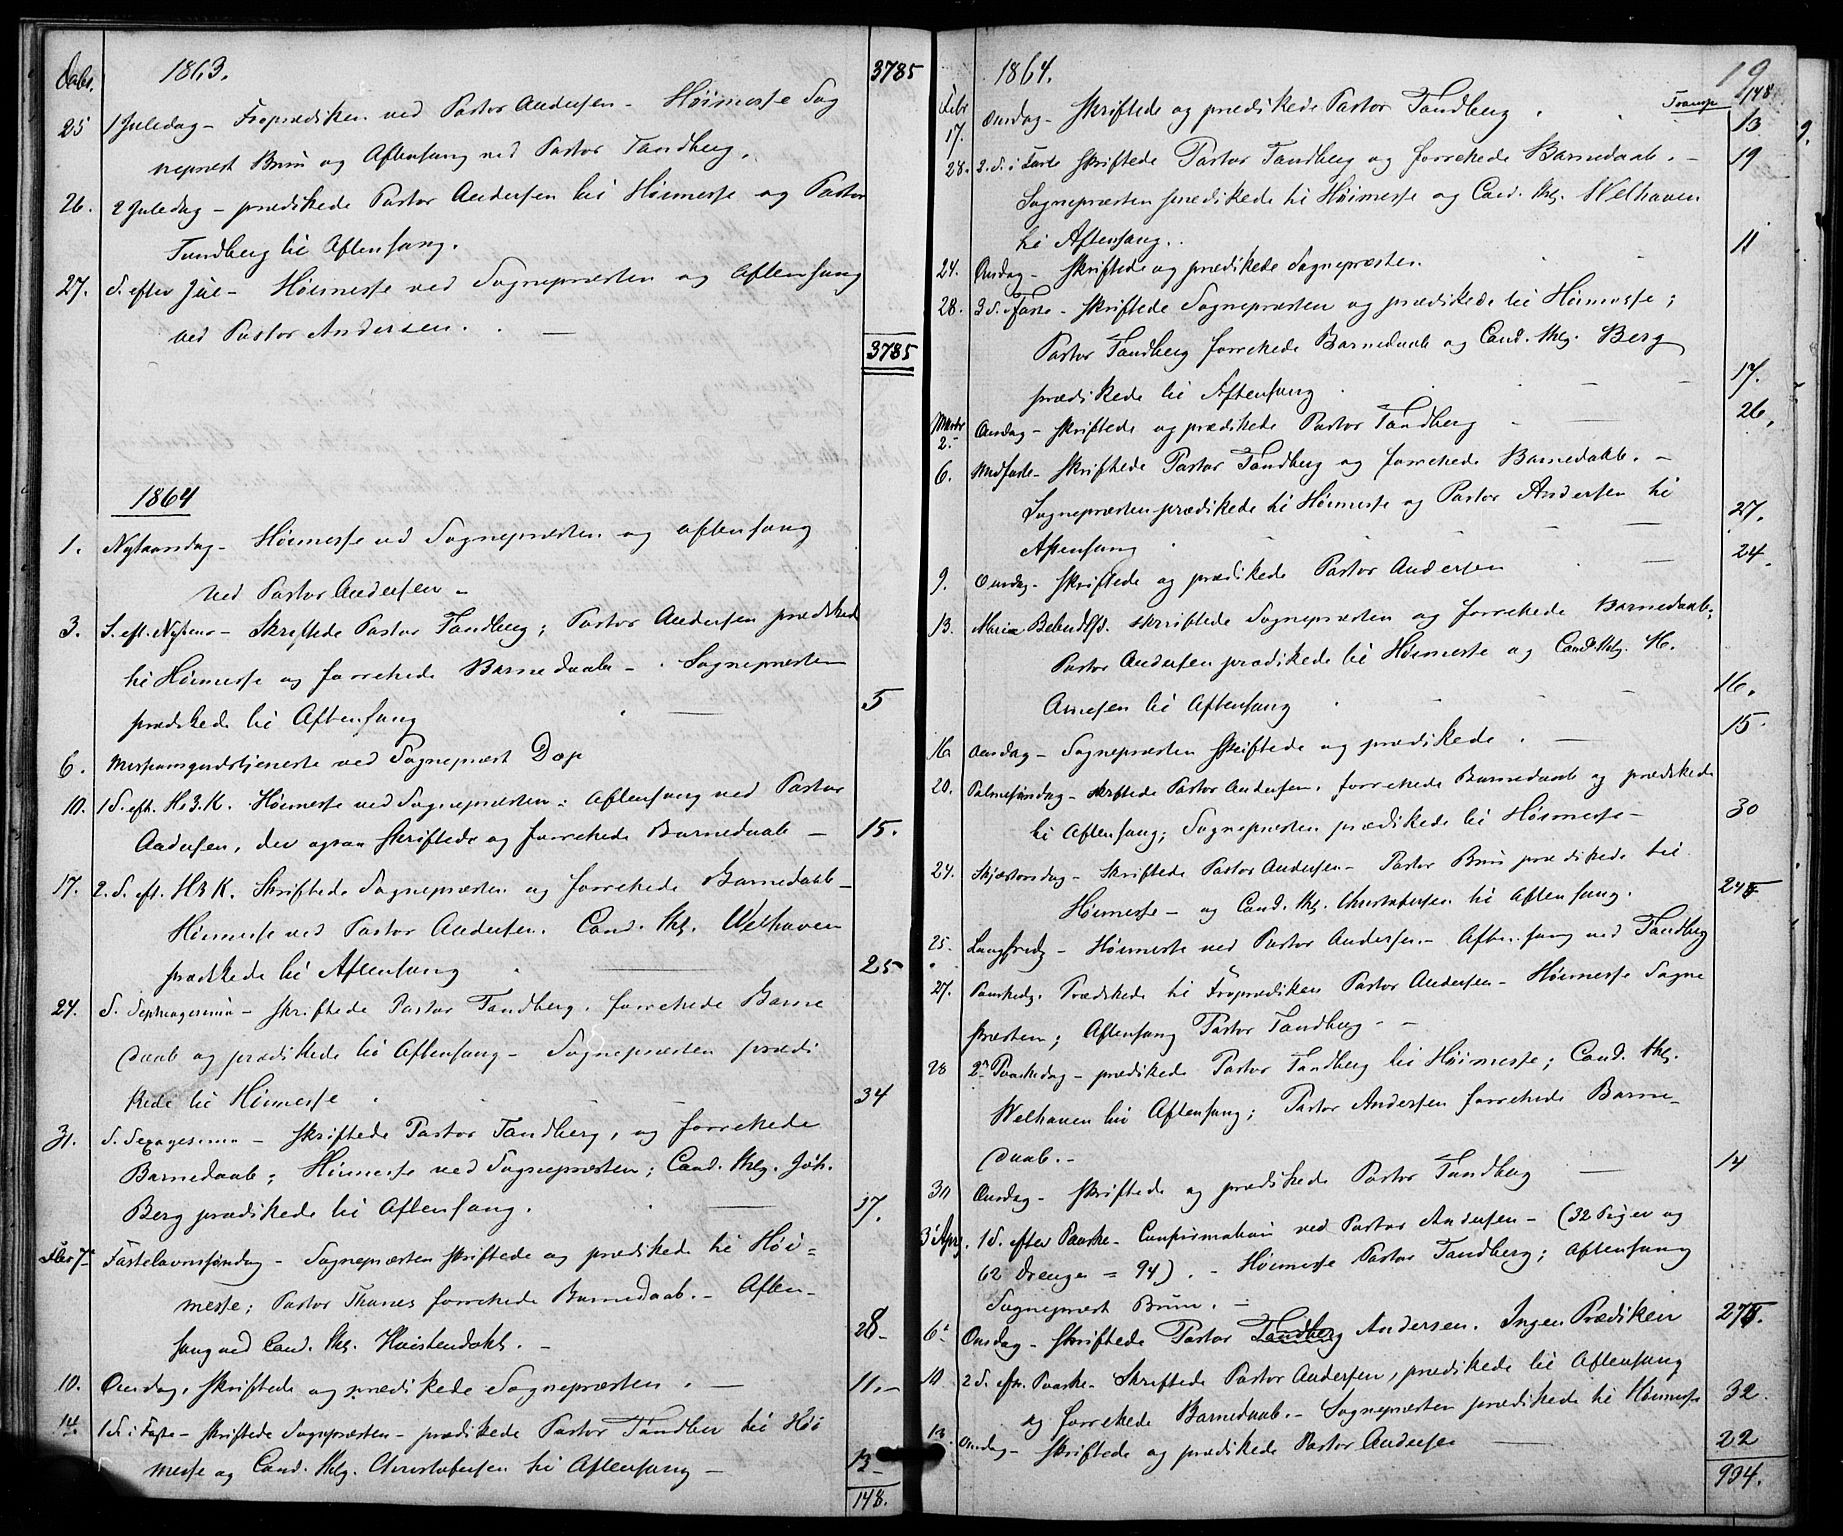 Dcbr. 1863. 3785
25 1 Juledag - Froprædiken ved Pastor Andersen - Høimesse Sog
nepræst Bruu og Aftensang ved Pastor Tandberg.
26. 2 Juledag - prædikede Pastor Andersen til Høimesse og Pastor
Tandberg til Aftensang.
27. S. efter Jul - Høimesse ved Sognepræsten og Aftensang
ved Pastor Andersen. -
3785
1864
1. Nytaarsdag - Høimesse ved Sognepræsten og Aftensang
ved Pastor Andersen -
3. S. eft. Nytaar - Skriftede Pastor Tandberg; Pastor Andersen prædikede
til Høimesse og forrettede Barnedaab - Sognepræsten
prædikede til Aftensang - 5
6. Missionsgudstjeneste ved Sognepræst
10. 1 S. eft. H.3.K. Høimesse ved Sognepræsten: Aftensang ved Pastor
Andersen, der ogsaa skriftede og forrettede Barnedaab - 15.
17. 2. S. eft. H3K. Skriftede Sognepræsten og forrettede Barnedaab -
Høimesse ved Pastor Andersen. Cand. thlg. Welhaven
prædikede til Aftensang - 25
24. S. Septuagesima - Skriftede Pastor Tandberg, forrettede Barne
daab og prædikede til Aftensang - Sognepræsten prædi
kede til Høimesse . 34
31. S. Sexagesima - Skriftede Pastor Tandberg, og forrettede
Barnedaab; Høimesse ved Sognepræsten; Cand. thlg. Joh.
Berg prædikede til Aftensang. - 17.
Febr 7 Fastelavnssøndag - Sognepræsten skriftede og prædikede til Høi=
messe; Pastor Thanes forrettede Barnedaab. - Aften-
sang ved Cand. thlg. Hvistendahl. - 28 -
10. Onsdag, skriftede og prædikede Sognepræsten. - 11. -
14. 1 S. i Faste - skriftede Sognepræsten - prædikede Pastor Tandber til Høi
messe og Cand. thlg. Christophersen til Aftensang - 13 -
148.
1864. 19
Transp 148
Febr 17. Onsdag - skriftede og prædikede Pastor Tandberg . 13
28. 2. S. i Faste skriftede Pastor Tandberg og forrettede Barnedaab. - 19
Sognepræsten prædikede til Høimesse og Cand. thlg. Welhaven
til Aftensang..
24. Onsdag - skriftede og prædikede Sognepræsten. 11
28. 3 S. i Faste - skriftede Sognepræsten og prædikede til Høimesse;
Pastor Tandberg forrettede Barnedaab og Cand. thlg. Berg
prædikede til Aftensang - 17.
Marts 2. Onsdag - skriftede og prædikede Pastor Tandberg 26.
6. Midfaste - skriftede Pastor Tandberg og forrettede Barnedaab. -
Sognepræsten prædikede til Høimesse og Pastor Andersen til
Aftensang . - 27.
9. Onsdag - skriftede og prædikede Pastor Andersen - 24.
13. Mariæ Bebudelse. skriftede Sognepræsten og forrettede Barnedaab;
Pastor Andersen prædikede til Høimesse og Cand. thlg. H.
Arnesen til Aftensang - 16.
16 Onsdag - Sognepræsten skriftede og prædikede . - 15.
20. Palmesøndag - skriftede Pastor Andersen, forrettede Barnedaab og prædikede
til Aftensang; Sognepræsten prædikede til Høimesse - 30
24. Skjærtorsdag - skriftede Pastor Andersen - Pastor Bruu prædikede til
Høimesse - og Cand. thlg. Christophersen til Aftensang. 245
25. Langfredg - Høimesse ved Pastor Andersen - Aftensang ved Tandberg
27. Paaskedg. Prædikede til Froprædiken Pastor Andersen - Høimesse Sogne
præsten; Aftensang Pastor Tandberg - -
28 2n Paaskedag - prædikede Pastor Tandberg til Høimesse; Cand. thlg.
Welhaven til Aftensang; Pastor Andersen forrettede Barne-
daab. -
30 Onsdag - skriftede og prædikede Pastor Tandberg - 14
3 Apr. 1 S. efter Paaske - Confirmation ved Pastor Andersen - (32 Piger og
62 Drenge = 94). - Høimesse Pastor Tandberg; Aftensang
Sognepræst Bruun. -
6 Onsdag - skriftede Pastor Tandberg Andersen. Ingen Prædiken 275.
10 2 S. eftr. Paaske - Skriftede Pastor Andersen, prædikede til Aftensang
og forrettede Barnedaab. - Sognepræsten prædikede til Høimesse 32.
13. Onsdag - skriftede og prædikede Pastor Andersen - 22
934.